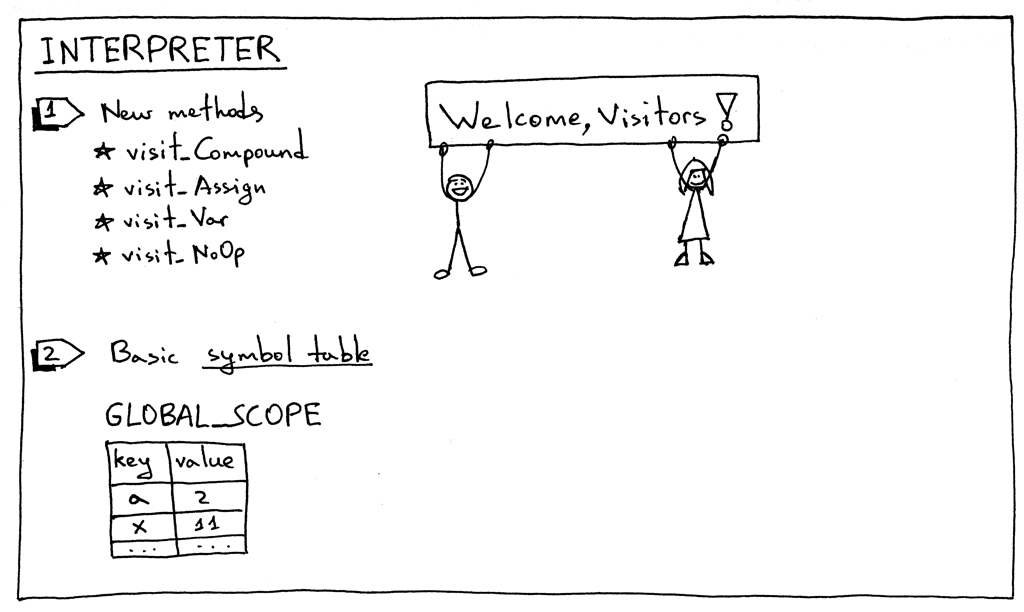 INTERPRETER
1 New methods
★ visit_Compound
★ visit_Assign
★ visit_Var
★ visit_NoOp
Welcome, Visitors!
2 Basic symbol table
GLOBAL_SCOPE
key value
a 2
x 11
... ...